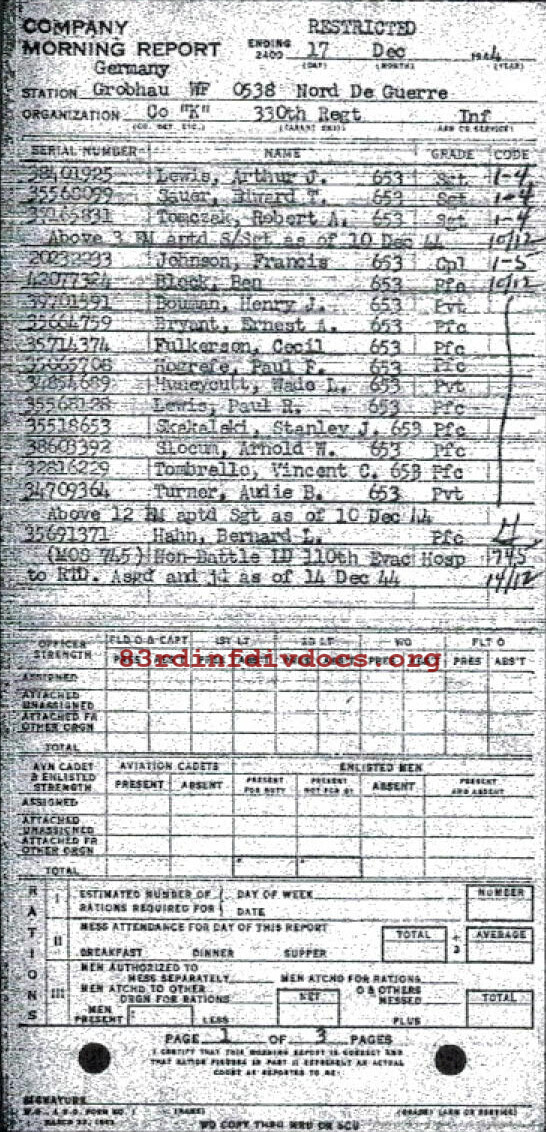 COMPANY RESTRICTED
MORNING REPORT ENDING 2400 17 Dec 1944
(DAY) (MONTH) (YEAR)
Germany
STATION Grobhau WF 0538 Nord De Guerre
ORGANIZATION Co "K" 330th Regt Inf
SERIAL NUMBER NAME GRADE CODE
38401925 Lewis, Arthur J. 653 Sgt 1-4
35568099 Sauer, Edward T. 653 Sgt 1-4
35165831 Tomczak, Robert A. 653 Sgt 1-4
Above 3 EM aptd S/Sgt as of 10 Dec 44 10/12
20232233 Johnson, Francis 653 Cpl 1-5
42077324 Block, Ben 653 Pfc 10/12
39701591 Bouman, Henry J. 653 Pvt
35664759 Bryant, Ernest A. 653 Pfc
35714374 Fulkerson, Cecil 653 Pfc
35665708 Hogrefe, Paul F. 653 Pfc
34854689 Huneycutt, Wade L. 653 Pvt
35568128 Lewis, Paul R. 653 Pfc
35518653 Skakalski, Stanley J. 653 Pfc
38603392 Slocum, Arnold W. 653 Pfc
32816229 Tombrello, Vincent C. 653 Pfc
34709364 Turner, Audie B. 653 Pvt
Above 12 EM aptd Sgt as of 10 Dec 44
35691371 Hahn, Bernard L. Pfc
(MOS 745) Non-Battle LD 110th Evac Hosp 745
to RTD. Asgd and jd as of 14 Dec 44 14/12
OFFICER STRENGTH FLD O & CAPT 1ST LT 2D LT WO FLT O
PRES ABS'T PRES ABS'T PRES ABS'T PRES ABS'T PRES ABS'T
83rdinfdivdocs.org
ASSIGNED
ATTACHED UNASSIGNED
ATTACHED FR OTHER ORGN
TOTAL
AVN CADET & ENLISTED STRENGTH AVIATION CADETS ENLISTED MEN
PRESENT ABSENT PRESENT FOR DUTY PRESENT NOT FOR DY ABSENT PRESENT AND ABSENT
ASSIGNED
ATTACHED UNASSIGNED
ATTACHED FR OTHER ORGN
TOTAL
RATIONS
I ESTIMATED NUMBER OF RATIONS REQUIRED FOR { DAY OF WEEK NUMBER
DATE
II MESS ATTENDANCE FOR DAY OF THIS REPORT TOTAL ÷ 3 AVERAGE
BREAKFAST DINNER SUPPER
III MEN AUTHORIZED TO MESS SEPARATELY MEN ATCHD FOR RATIONS
MEN ATCHD TO OTHER ORGN FOR RATIONS NET O & OTHERS MESSED TOTAL
MEN PRESENT LESS PLUS
PAGE 1 OF 3 PAGES
I CERTIFY THAT THIS MORNING REPORT IS CORRECT AND
THAT RATION FIGURES IN PART II REPRESENT AN ACTUAL
COUNT AS REPORTED TO ME.
SIGNATURE
W.D., A.G.O. FORM NO. 1 (NAME) (GRADE) (ARM OR SERVICE)
MARCH 23, 1943
WD COPY THRU MRU OR SCU